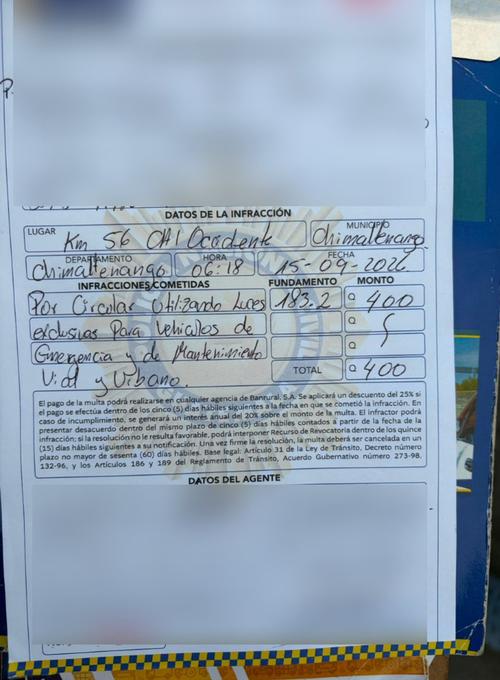 DATOS DE LA INFRACCIÓN
LUGAR Km 56 CA1 Occidente MUNICIPIO Chimaltenango
DEPARTAMENTO Chimaltenango HORA 06:18 FECHA 15-09-2026
INFRACCIONES COMETIDAS FUNDAMENTO MONTO
Por Circular Utilizando luces 183.2 Q 400
exclusivas Para vehiculos de Q
Emergencia y de Mantenimiento Q
Vial y Urbano. TOTAL Q 400
El pago de la multa podrá realizarse en cualquier agencia de Banrural, S.A. Se aplicará un descuento del 25% si
el pago se efectúa dentro de los cinco (5) días hábiles siguientes a la fecha en que se cometió la infracción. En
caso de incumplimiento, se generará un interés anual del 20% sobre el monto de la multa. El infractor podrá
presentar desacuerdo dentro del mismo plazo de cinco (5) días hábiles contados a partir de la fecha de la
infracción; si la resolución no le resulta favorable, podrá interponer Recurso de Revocatoria dentro de los quince
(15) días hábiles siguientes a su notificación. Una vez firme la resolución, la multa deberá ser cancelada en un
plazo no mayor de sesenta (60) días hábiles. Base legal: Artículo 31 de la Ley de Tránsito, Decreto número
132-96, y los Artículos 186 y 189 del Reglamento de Tránsito, Acuerdo Gubernativo número 273-98.
DATOS DEL AGENTE